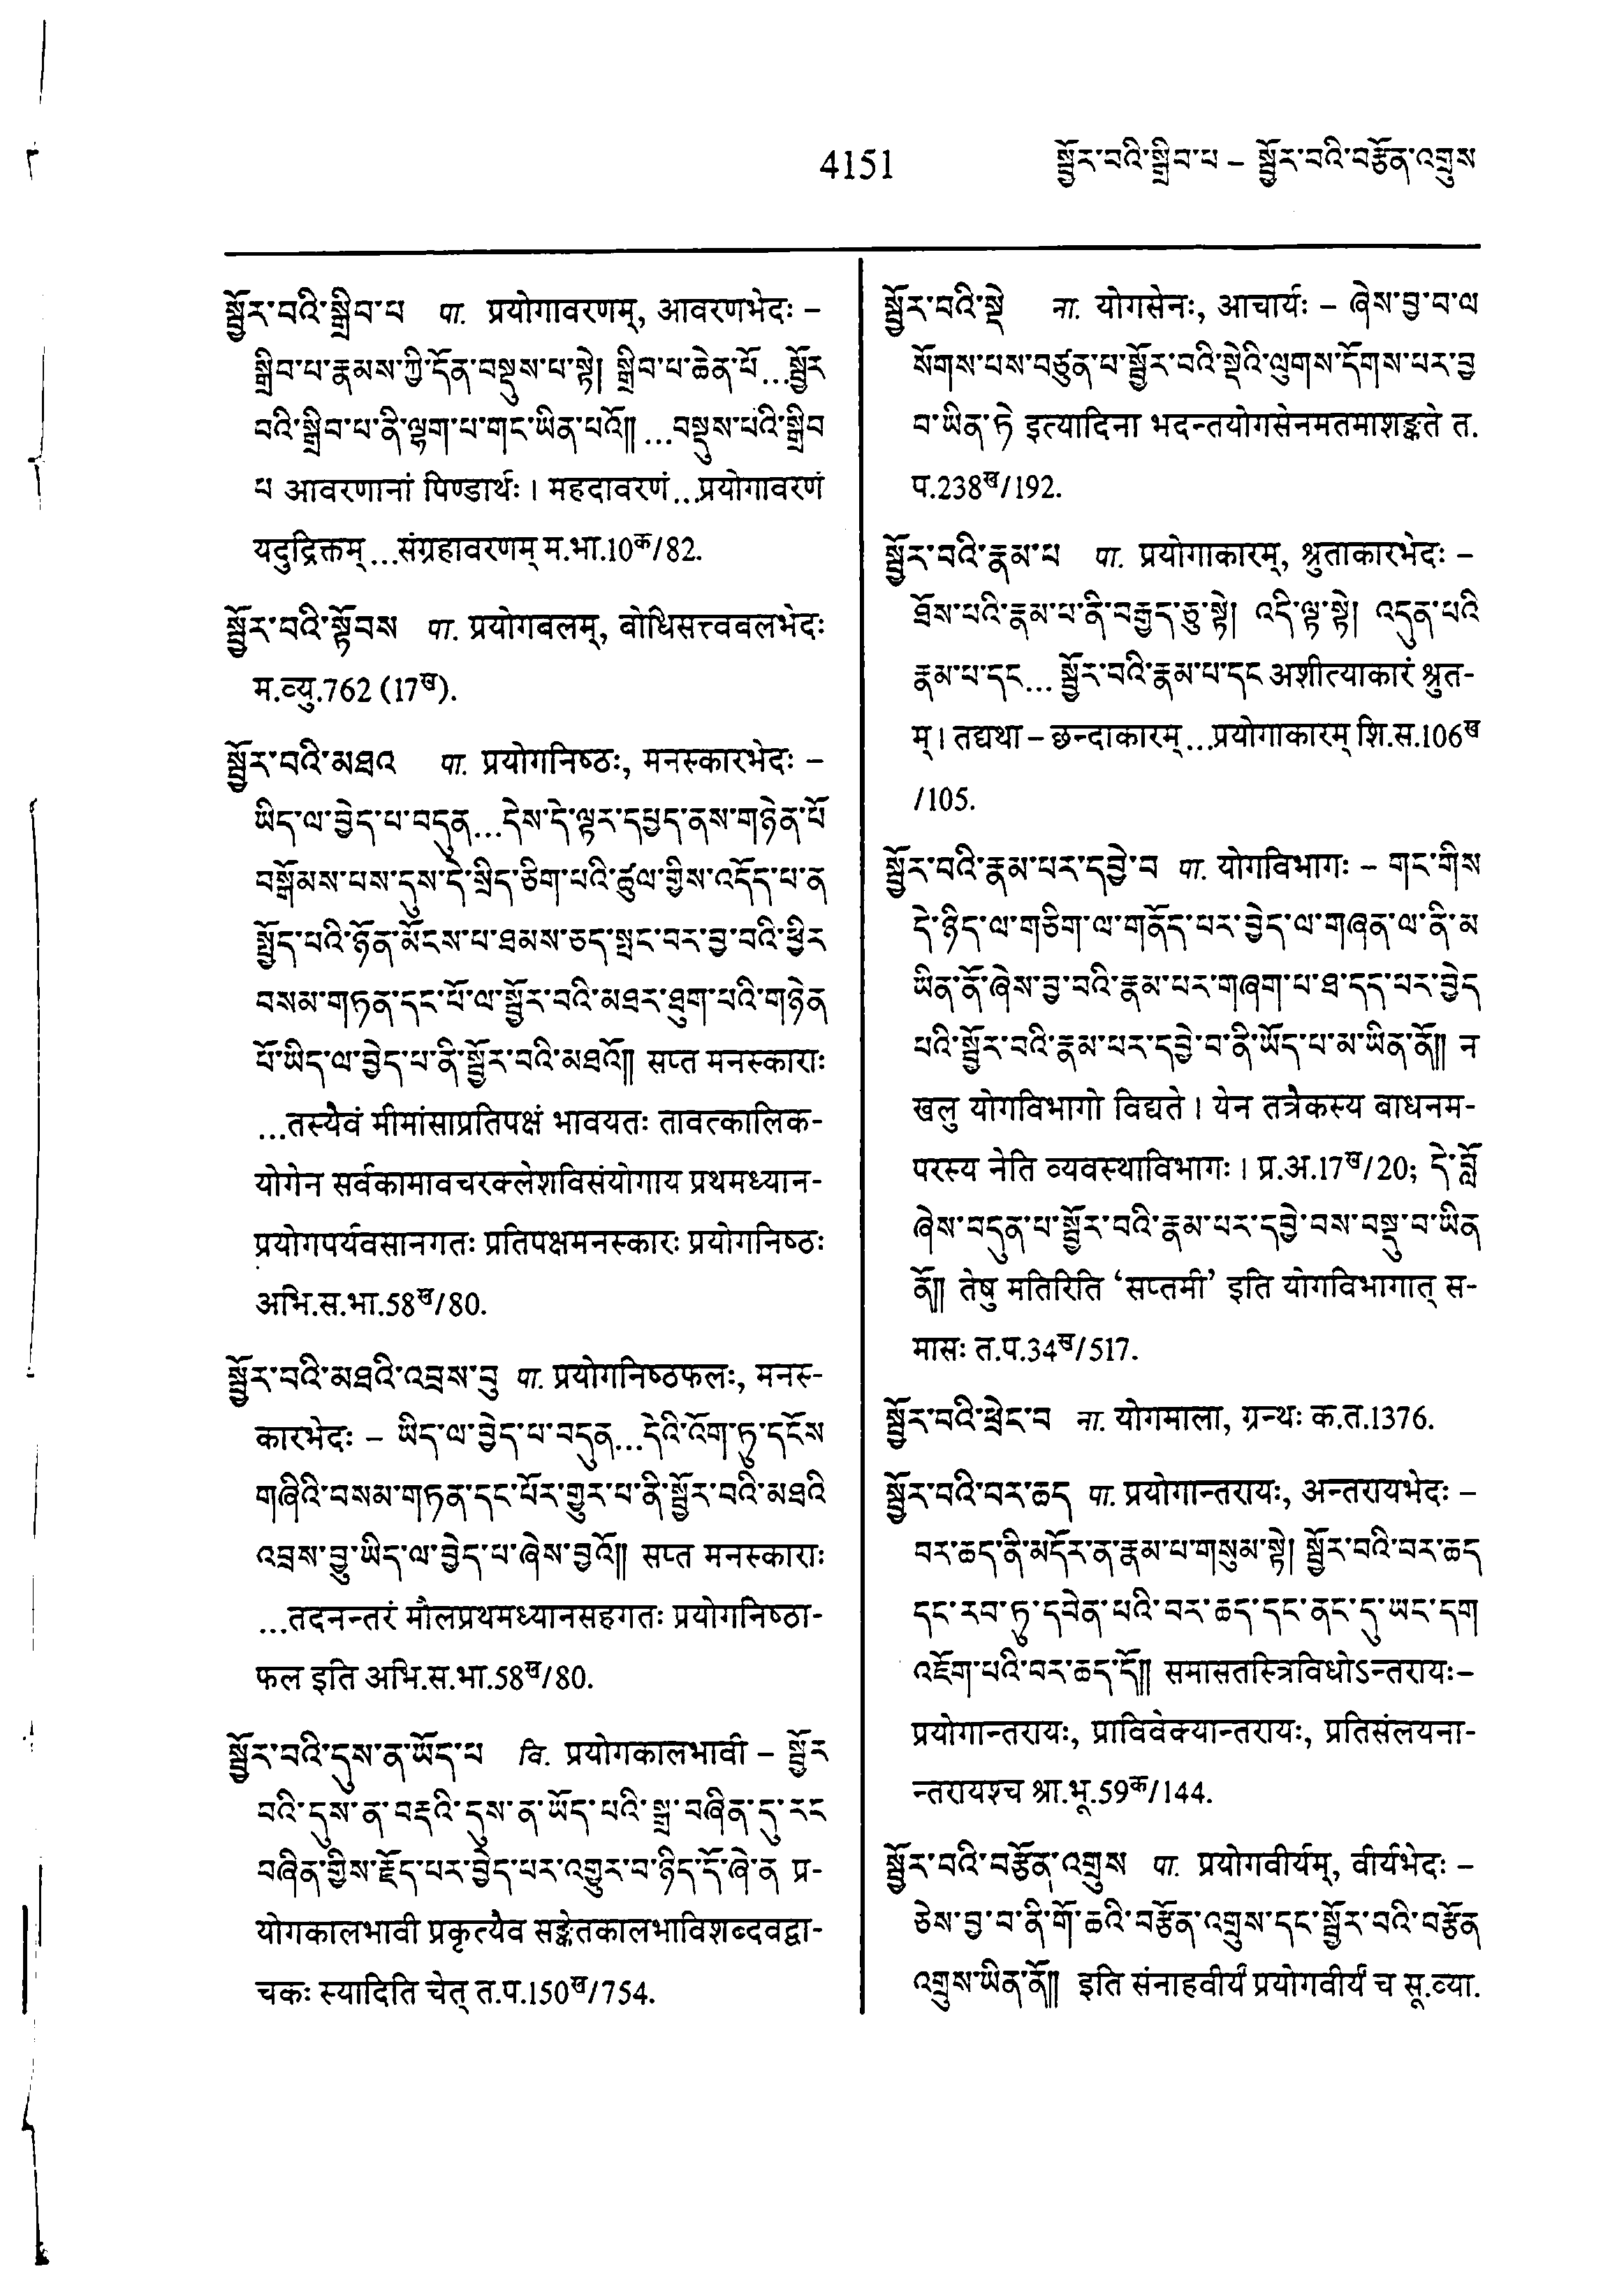 4151 སྦྱོར་བའི་སྒྲིབ་པ – སྦྱོར་བའི་བརྩོན་འགྲུས
སྦྱོར་བའི་སྒྲིབ་པ पा. प्रयोगावरणम्, आवरणभेदः –
སྒྲིབ་པ་རྣམས་ཀྱི་དོན་བསྡུས་པ་སྟེ། སྒྲིབ་པ་ཆེན་པོ...སྦྱོར
བའི་སྒྲིབ་པ་ནི་ལྷག་པ་གང་ཡིན་པའོ༎ ...བསྡུས་པའི་སྒྲིབ
པ आवरणानां पिण्डार्थः । महदावरणं...प्रयोगावरणं
यदुद्रिक्तम् ...संग्रहावरणम् म.भा.10क/82.
སྦྱོར་བའི་སྟོབས पा. प्रयोगबलम्, बोधिसत्त्वबलभेदः
म.व्यु.762 (17ख).
སྦྱོར་བའི་མཐའ पा. प्रयोगनिष्ठः, मनस्कारभेदः –
ཡིད་ལ་བྱེད་པ་བདུན...དེས་དེ་ལྟར་དཔྱད་ནས་གཉེན་པོ
བསྒོམས་པས་དུས་དེ་སྲིད་ཅིག་པའི་ཚུལ་གྱིས་འདོད་པ་ན
སྤྱོད་པའི་ཉོན་མོངས་པ་ཐམས་ཅད་སྤང་བར་བྱ་བའི་ཕྱིར
བསམ་གཏན་དང་པོ་ལ་སྦྱོར་བའི་མཐར་ཐུག་པའི་གཉེན
པོ་ཡིད་ལ་བྱེད་པ་ནི་སྦྱོར་བའི་མཐའོ༎ सप्त मनस्काराः
...तस्यैवं मीमांसाप्रतिपक्षं भावयतः तावत्कालिक-
योगेन सर्वकामावचरक्लेशविसंयोगाय प्रथमध्यान-
प्रयोगपर्यवसानगतः प्रतिपक्षमनस्कारः प्रयोगनिष्ठः
अभि.स.भा.58ख/80.
སྦྱོར་བའི་མཐའི་འབྲས་བུ पा. प्रयोगनिष्ठफलः, मनस-
कारभेदः – ཡིད་ལ་བྱེད་པ་བདུན...དེའི་འོག་ཏུ་དངོས
གཞིའི་བསམ་གཏན་དང་པོར་གྱུར་པ་ནི་སྦྱོར་བའི་མཐའི
འབྲས་བུ་ཡིད་ལ་བྱེད་པ་ཞེས་བྱའོ༎ सप्त मनस्काराः
...तदनन्तरं मौलप्रथमध्यानसहगतः प्रयोगनिष्ठा-
फल इति अभि.स.भा.58ख/80.
སྦྱོར་བའི་དུས་ན་ཡོད་པ वि. प्रयोगकालभावी – སྦྱོར
བའི་དུས་ན་བརྡའི་དུས་ན་ཡོད་པའི་སྒྲ་བཞིན་དུ་རང
བཞིན་གྱིས་རྗོད་པར་བྱེད་པར་འགྱུར་བ་ཉིད་དོ་ཞེ་ན प्र-
योगकालभावी प्रकृत्यैव सङ्केतकालभाविशब्दवद्वा-
चकः स्यादिति चेत् त.प.150ख/754.
སྦྱོར་བའི་སྡེ ना. योगसेनः, आचार्यः – ཞེས་བྱ་བ་ལ
སོགས་པས་བཙུན་པ་སྦྱོར་བའི་སྡེའི་ལུགས་དོགས་པར་བྱ
བ་ཡིན་ཏེ इत्यादिना भदन्तयोगसेनमतमाशङ्कते त.
प.238ख/192.
སྦྱོར་བའི་རྣམ་པ पा. प्रयोगाकारम्, श्रुताकारभेदः –
ཐོས་པའི་རྣམ་པ་ནི་བརྒྱད་ཅུ་སྟེ། འདི་ལྟ་སྟེ། འདུན་པའི
རྣམ་པ་དང... སྦྱོར་བའི་རྣམ་པ་དང अशीत्याकारं श्रुत-
म् । तद्यथा – छन्दाकारम् ...प्रयोगाकारम् शि.स.106ख
/105.
སྦྱོར་བའི་རྣམ་པར་དབྱེ་བ पा. योगविभागः – གང་གིས
དེ་ཉིད་ལ་གཅིག་ལ་གནོད་པར་བྱེད་ལ་གཞན་ལ་ནི་མ
ཡིན་ནོ་ཞེས་བྱ་བའི་རྣམ་པར་གཞག་པ་ཐ་དད་པར་བྱེད
པའི་སྦྱོར་བའི་རྣམ་པར་དབྱེ་བ་ནི་ཡོད་པ་མ་ཡིན་ནོ༎ न
खलु योगविभागो विद्यते । येन तत्रैकस्य बाधनम-
परस्य नेति व्यवस्थाविभागः । प्र.अ.17ख/20; དེ་བློ
ཞེས་བདུན་པ་སྦྱོར་བའི་རྣམ་པར་དབྱེ་བས་བསྡུ་བ་ཡིན
ནོ༎ तेषु मतिरिति ‘सप्तमी’ इति योगविभागात् स-
मासः त.प.34ख/517.
སྦྱོར་བའི་ཕྲེང་བ ना. योगमाला, ग्रन्थः क.त.1376.
སྦྱོར་བའི་བར་ཆད पा. प्रयोगान्तरायः, अन्तरायभेदः –
བར་ཆད་ནི་མདོར་ན་རྣམ་པ་གསུམ་སྟེ། སྦྱོར་བའི་བར་ཆད
དང་རབ་ཏུ་དབེན་པའི་བར་ཆད་དང་ནང་དུ་ཡང་དག
འཇོག་པའི་བར་ཆད་དོ༎ समासतस्त्रिविधोऽन्तरायः–
प्रयोगान्तरायः, प्राविवेक्यान्तरायः, प्रतिसंलयना-
न्तरायश्च श्रा.भू.59क/144.
སྦྱོར་བའི་བརྩོན་འགྲུས पा. प्रयोगवीर्यम्, वीर्यभेदः –
ཅེས་བྱ་བ་ནི་གོ་ཆའི་བརྩོན་འགྲུས་དང་སྦྱོར་བའི་བརྩོན
འགྲུས་ཡིན་ནོ༎ इति संनाहवीर्यं प्रयोगवीर्यं च सू.व्या.